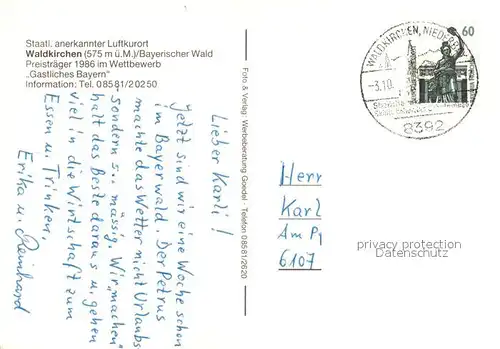 Staatl. anerkannter Luftkurort
Waldkirchen (575 m ü.M.)/Bayerischer Wald
Preisträger 1986 im Wettbewerb
„Gastliches Bayern"
Information: Tel. 08581/20250
Lieber Karli!
Jetzt sind wir eine Woche schon
im Bayerwald. Der Petrus
machte das Wetter nicht Urlaubs
sondern s.. mässig. Wir „machen"
halt das Beste daraus u. gehen
viel in die Wirtschaft zum
Essen u. Trinken.
Erika u. Reinhard
Foto & Verlag: Werbeberatung Goedel - Telefon 08581/2620
WALDKIRCHEN, NIEDERB
-3.10.
8392
60
Herr
Karl
Am
6107
privacy protection
Datenschutz